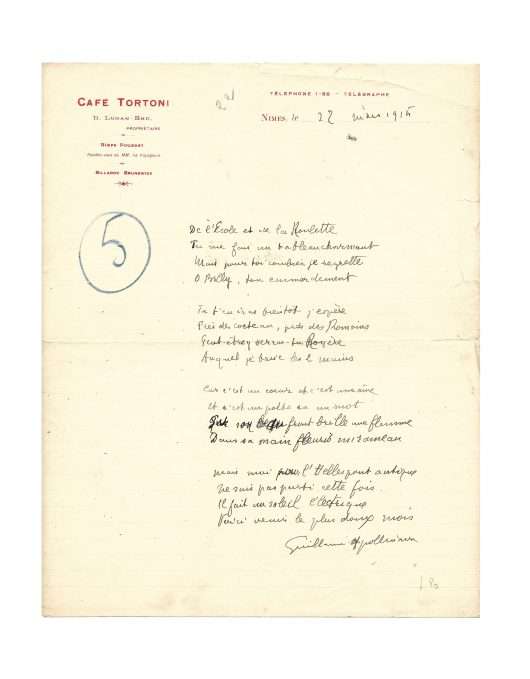 CAFÉ TORTONI
PROPRIÉTAIRE
TÉLÉPHONE 1-82 - TÉLÉGRAPHE
NIMES, le 22 mars 1915
5
De l'École et de la Roulette
Tu me fais un tableau charmant
Mais pour toi combien je regrette
O Rouly, ton emmerdement
Tu t'en iras bientôt j'espère
Près des coteaux, près des Romains
Peut-être verras-tu Royère
Auquel je baise les 2 mains
Car c'est un cœur et c'est une âme
Et c'est un poète en un mot
Sur son front brille une flamme
Dans sa main fleurit un rameau
mais moi pour l'Hellespont antique
ne suis pas parti cette fois
Il fait un soleil électrique
Voici venir le plus doux mois
Guillaume Apollinaire